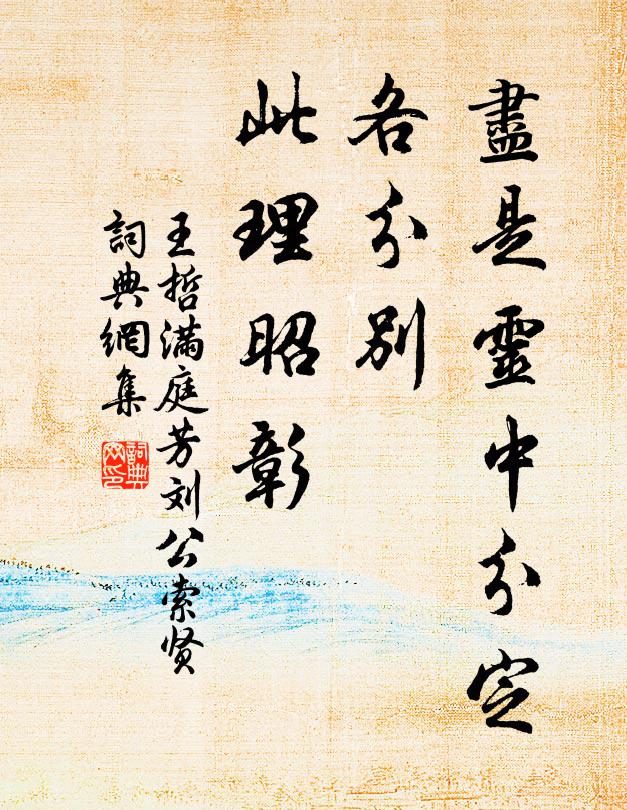 盡是靈中分定
各分別
此理昭彰
王哲满庭芳刘公索贤
詞典網集
詞典網印